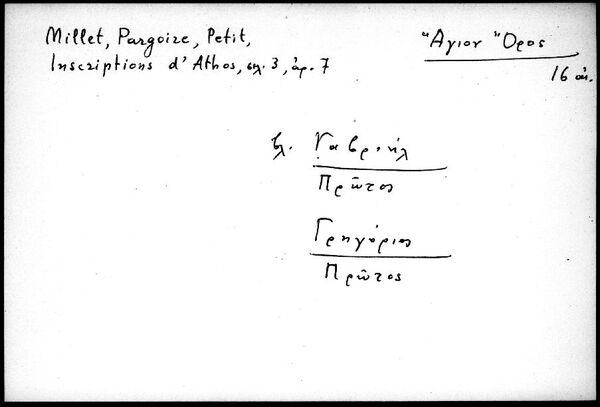 Millet, Pargoire, Petit,
Inscriptions d'Athos, σελ. 3, ἀρ. 7
Ἅγιον Ὄρος
16 αἰ.
βλ. Γαβριήλ
Πρῶτος
Γρηγόριος
Πρῶτος